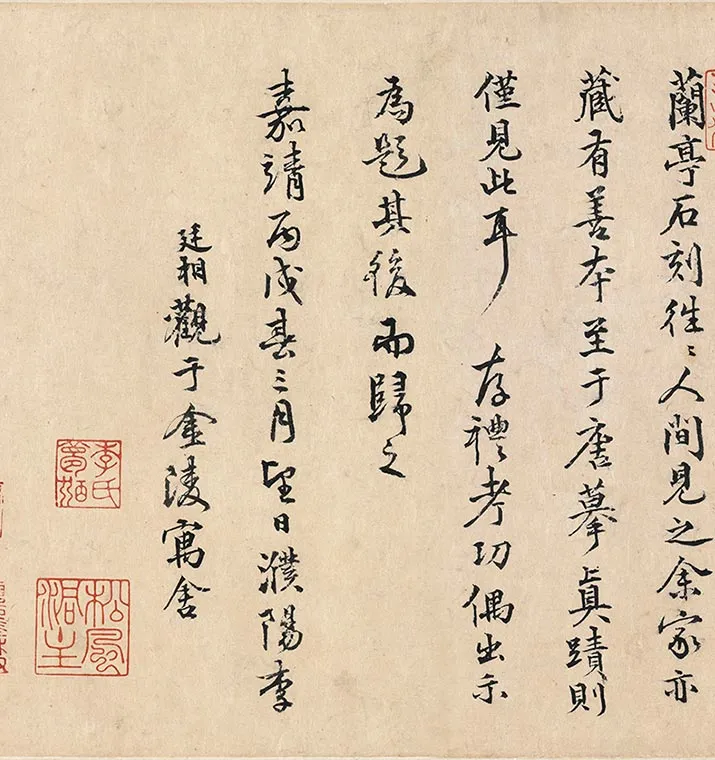 蘭亭石刻往〻人間見之余家亦
藏有善本至于唐摹眞蹟則
僅見此耳 存禮考功偶出示
為題其後而歸之
嘉靖丙戌春三月望日濮陽李
廷相觀于金陵寓舍
李氏夢弼
松風洞主